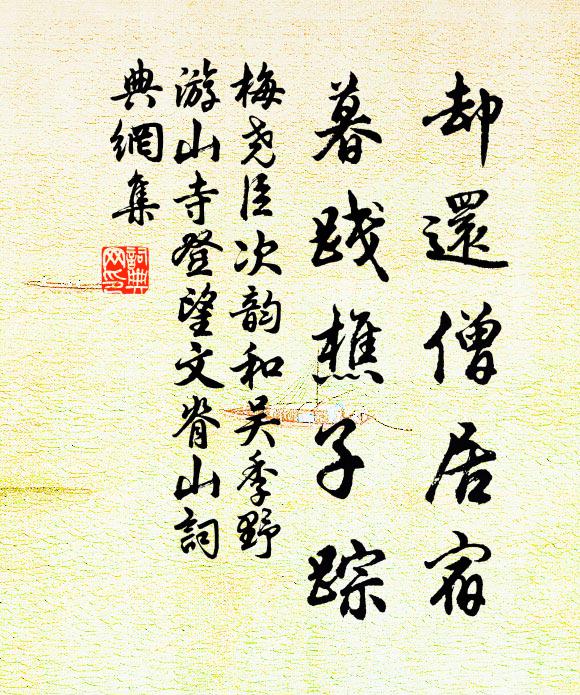 却還僧居宿
暮践樵子踪
梅尧臣次韵和吴季野
游山寺登望文脊山詞
典網集
詞典
网印